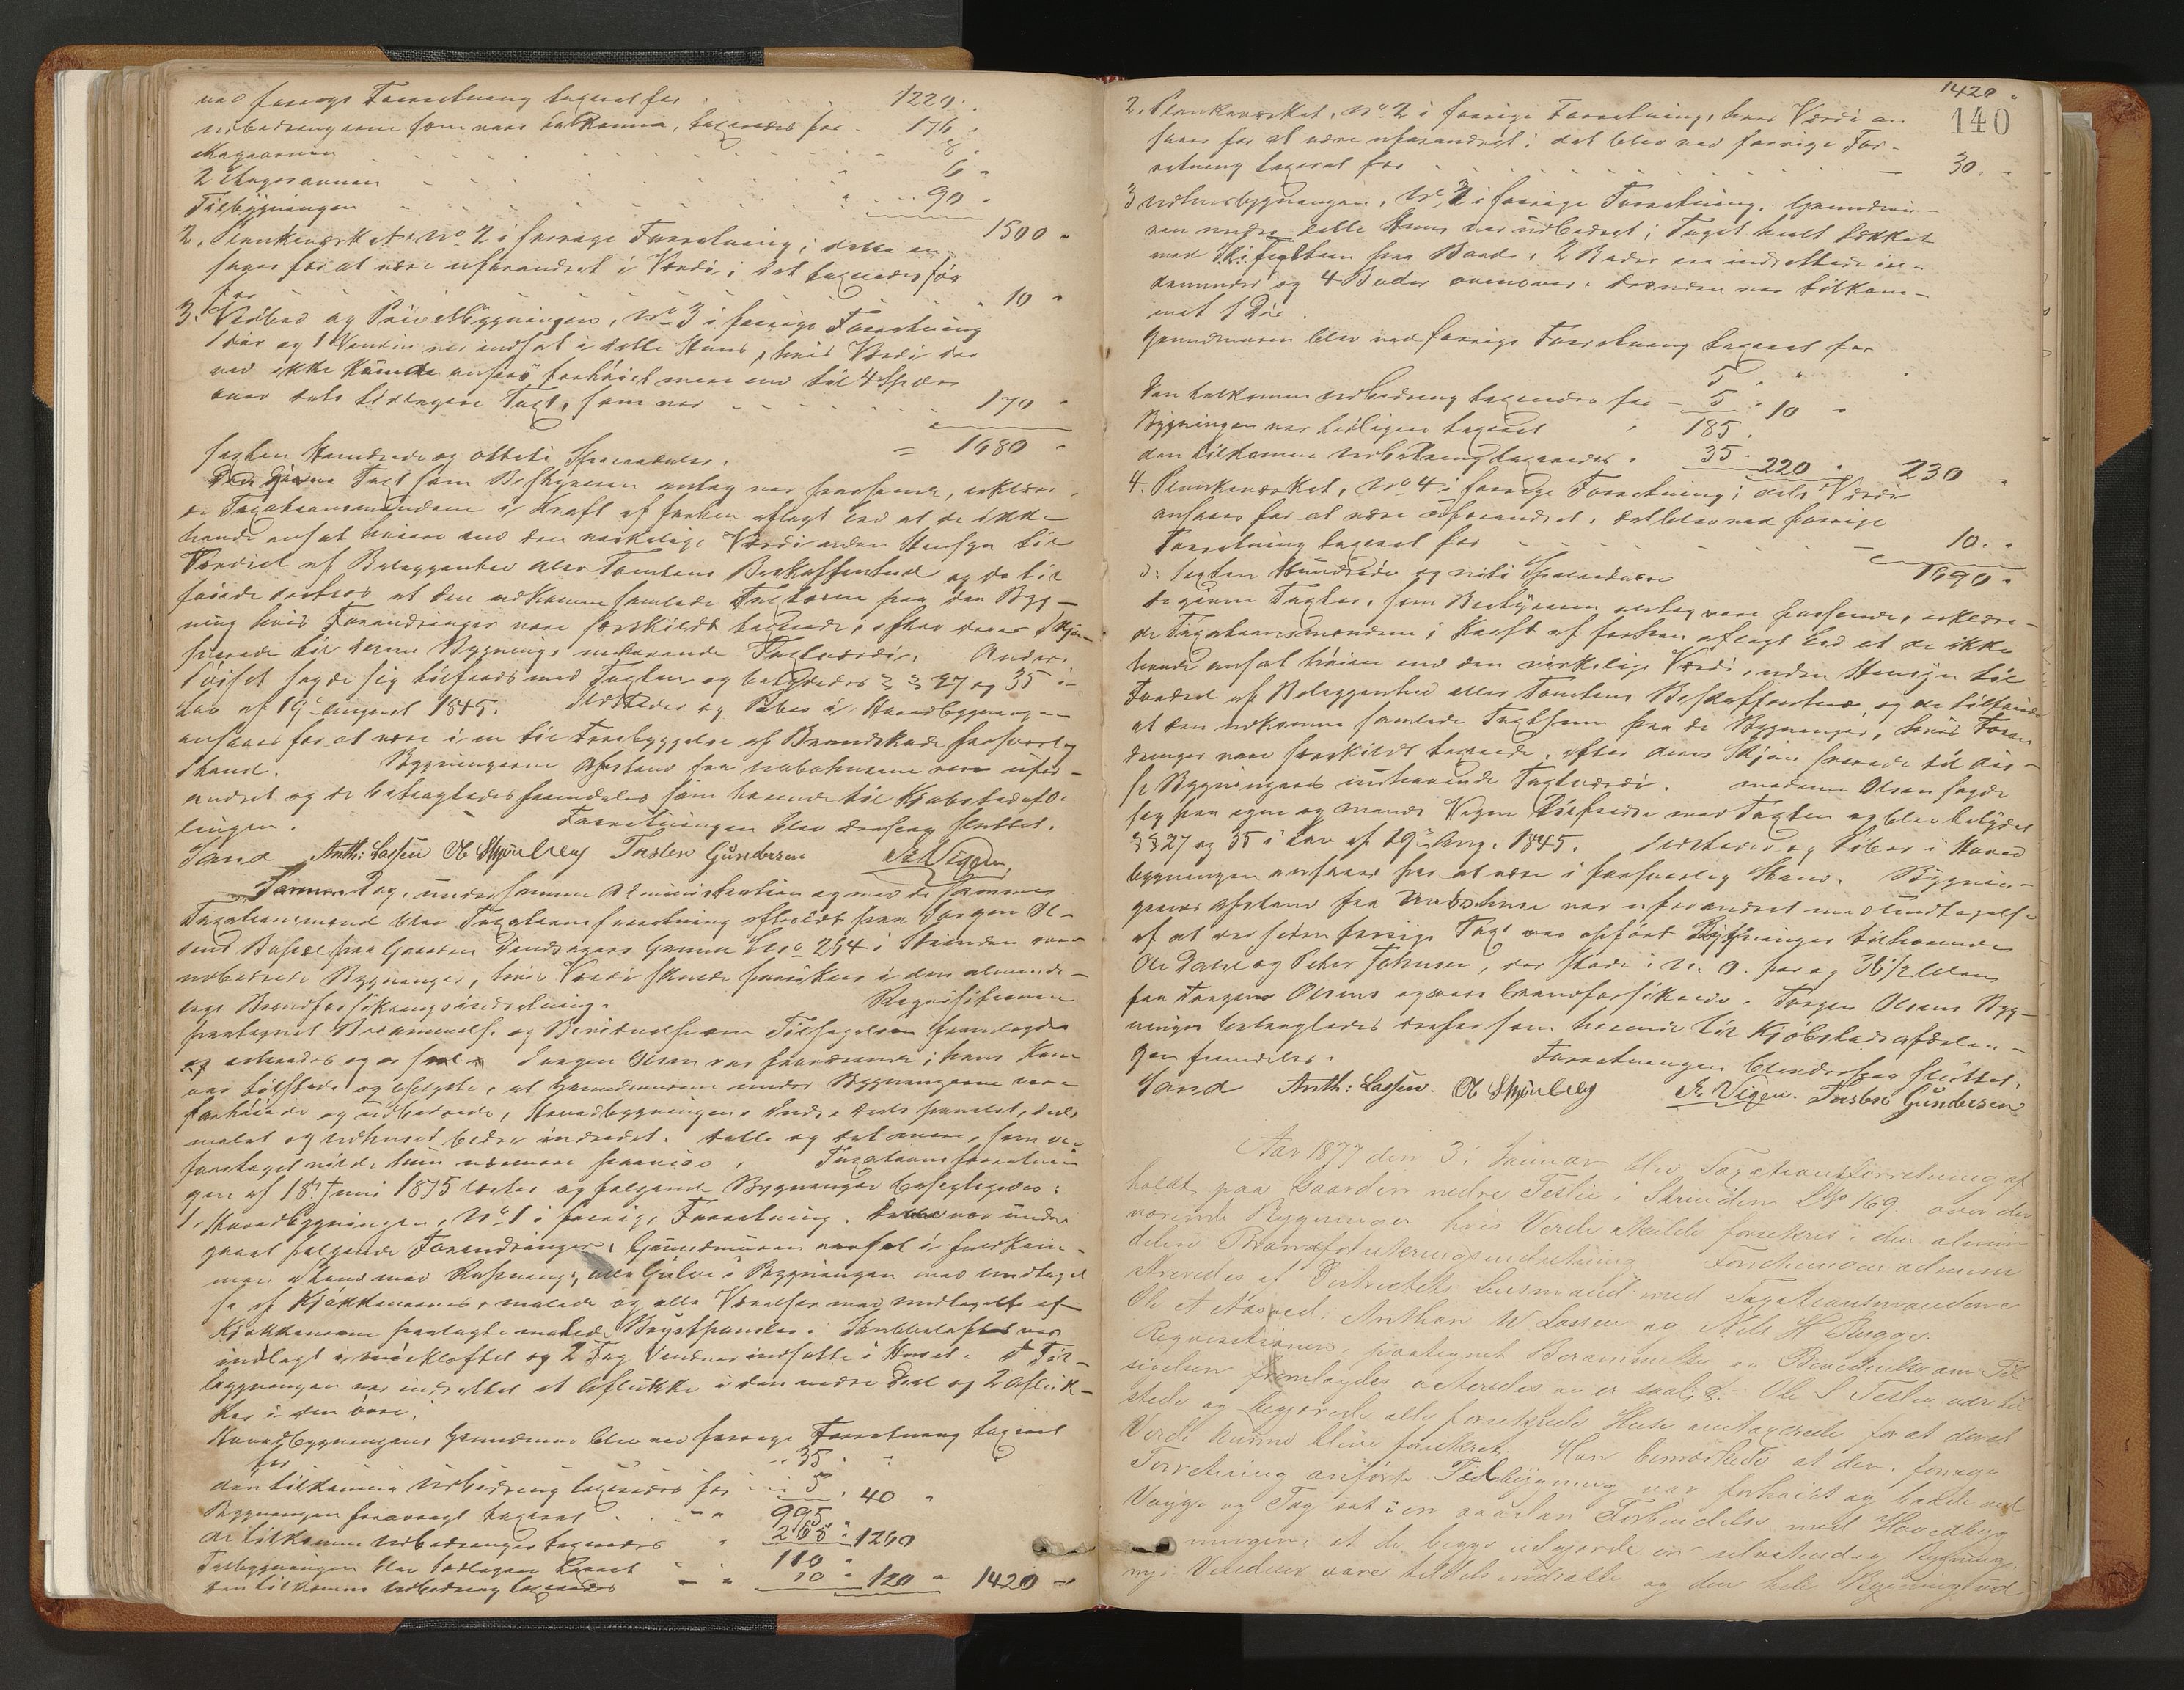 ved forrige Forretning taxeret for 1220.
Udbedringerne som vare tilkomne, taxeredes for 176
Magasinen 8
2 Magasinen 6
Tilbygningen 90
1500
2, Plankeværket, No 2 i forrige Forretning; dette an-
sages for at være uforandret i Værdi; det taxeredes før
for 10
3. Vedbod og Privetbygningen, No 3 i forrige Forretning
1 Dør og 1 Vindu var indsat i dette Huus, hvis Værdi der
ved ikke kunde ansees forhøiet mere end til 4 Spdlr
over dets tidligere Taxt, som var 170
= 1680
sexten Hundrede og otteti Speciedaler.
Den givne Taxt som Bestyreren antog var passende, erklære-
de Taxationsmændene i Kraft af forhen aflagt Ed at de ikke
havde ansat høiere end den virkelige Værdi uden Hensyn til
Værdiel af Beleggenhed eller Tomtens Beskaffenhed og de til
føiede derhos at den udkomne samlede Taxtsum paa den Byg-
ning hvis Forandringer vare særskildt taxerede, efter deres Skjøn
svarede til denne Bygnings nuværende Taxtværdi. Anders
sagde sig tilfreds med Taxten og betydedes §§ 27 og 35 i
Lov af 19de August 1845. Ildsteder og Piber i Hovedbygningen
ansaaes for at være i en til Forebyggelse af Brandskade forsvarlig
Stand. Bygningerne Afstand fra Nabohusene var ufor-
andret og de betragtedes fremdeles som hørende til Kjøbstadafde-
lingen. Forretningen blev derpaa sluttet.
Sand Anth: Lassen O Skjønberg Torsten Gundersen A. Vigen.
Samme Dag, under samme Administration og med de samme
Taxationsmænd blev Taxationsforretning afholdt paa Jørgen Ol-
sens Bopæl paa Gaarden Grund Lno 264 i Skienden over
udbedrede Bygninger, hvis Værdi skulde forsikres i den alminde-
lige Brandforsikringsindretning. Reqvisitionen
paategnet Berammelse og Beviisnelse om Tilsigelsen fremlagdes
og acteredes og er saal. Jørgen Olsen var fraværende; hans Kone
var tilstede og oplyste, at Grundmurene under Bygningerne vare
forhøiede og udbedrede, Hovedbygningens Indre deels panelet, deels
malet og Udhuset bedre indredet. Dette og det mere, som var
foretaget vilde hun nærmere paavise. Taxationsforretnin-
gen af 18de Juni 1875 læstes og følgende Bygninger besigtigedes:
1. Hovedbygningen, No 1 i forrige Forretning. Dette var under-
gaaet følgende Forandringer: Grundmuren ansat i fuldkom-
men Stand med Rapning; alle Gulve i Bygningen med Undtagel-
se af Kjøkkenernes, malede og alle Værelser med Undtagelse af
Kjøkkenerne paalagte malede Brystpaneler. Stubbeloft var
indlagt i Mørkloftet og 2 Fag Vinduer indsatte i Huset. I Til-
bygningen var indrettet et Aflukke i den nedre Deel og 2 Afluk-
ker i den øvre.
Hovedbygningens Grundmur blev ved forrige Forretning taxeret
for 35
den tilkomne Udbedring taxeredes for 5 . 40
Bygningen forøvrigt taxeret 995
de tilkomne Udbedringer taxeredes 265 . 1260
Tilbygningen blev tidligere taxeret 110
den tilkomne Udbedring taxeredes 10 . 120 1420
1420
140
2. Plankeværket, No 2 i forrige Forretning, hvis Værdi an-
saaes for at være uforandret; det blev ved forrige For-
retning taxeret for 30.
3 Udhusbygningen, No 3 i forrige Forretning. Grundmu-
ren under dette Huus var udbedret; Taget heelt dækket
med Skifersteen paa Bord, 2 Boder ere indrettede ne-
denunder og 4 Boder ovenover. Desuden var tilkom-
met 1 Dør.
Grundmuren blev ved forrige Forretning taxeret for
5
den tilkomne Udbedring taxeredes for 5 . 10
Bygningen var tidligere taxeret 185.
den tilkomne Udbedring taxeredes 35 . 220 230
4. Plankeværket, No 4 i forrige Forretning; dets Værdi
ansaaes for at være uforandret, det blev ved forrige
Forretning taxeret for 10.
1690
D: sexten Hundrede og niti Speciedaler
De givne Taxter, som Bestyreren antog vare passende, erklære-
de Taxationsmændene i Kraft af forhen aflagt Ed at de ikke
havde ansat høiere end den virkelige Værdi, uden Hensyn til
Fordeel af Beleggenhed eller Tomtens Beskaffenhed og de tilføiede
at den udkomne samlede Taxtsum paa de Bygninger, hvis Foran-
dringer vare særskildt taxerede, efter deres Skjøn svarede til dis-
se Bygningers nuværende Taxtværdi. Madame Olsen sagde
sig paa egne og Mands Vegne tilfreds med Taxten og blev betydet
§§ 27 og 35 i Lov af 19de Aug. 1845. Ildsteder og Piber i Hoved
bygningen ansaaes for at være i forsvarlig Stand. Bygnin-
gernes Afstand fra Nabohuse var uforandret med Undtagelse
af at der siden forrige Taxt var opført Bygninger tilhørende
Ole Dahl og Peter Johnsen, der stode i N. O. for og 36 1/2 Alen
fra Jørgen Olsens og vare brandforsikrede. Jørgen Olsens Byg-
ninger betragtedes derfor som hørende til Kjøbstadsafdelin-
gen fremdeles. Forretningen blev derpaa sluttet.
Sand Anth: Lassen. O Skjønberg A. Vigen. Torsten Gundersen
Aar 1877 den 3. Januar blev Taxationsforretning af
holdt paa Gaarden nedre Teslie i Skrinden LNo 169 over der
værende Bygninger hvis Verdi skulde forsikres i den almin
delige Brandforsikringsindretning. Forretningen admini
streredes af Districtets Lensmand med Taxationsmændene
Ole A Aasved, Anthon W Lassen og Nils H Bugge.
Reqvisitionen, paategnet Berammelse og Beviisnelse om Til
sigelsen fremlagdes acteredes og er saal: Ole S Teslie var til
stede og begjærede alle forsikrede Huse omtaxerede for at deres
Verdi kunne blive forsikret. Han bemærkede at den i forrige
Forretning anførte Tilbygning var forhøiet og havde ved
Vægge og Tag sat i en saadan Forbindelse med Hovedbyg
ningen, at de begge udgjorde en selvstændig Bygning.
nye Vinduer vare tildels indsatte og den hele Bygning ud